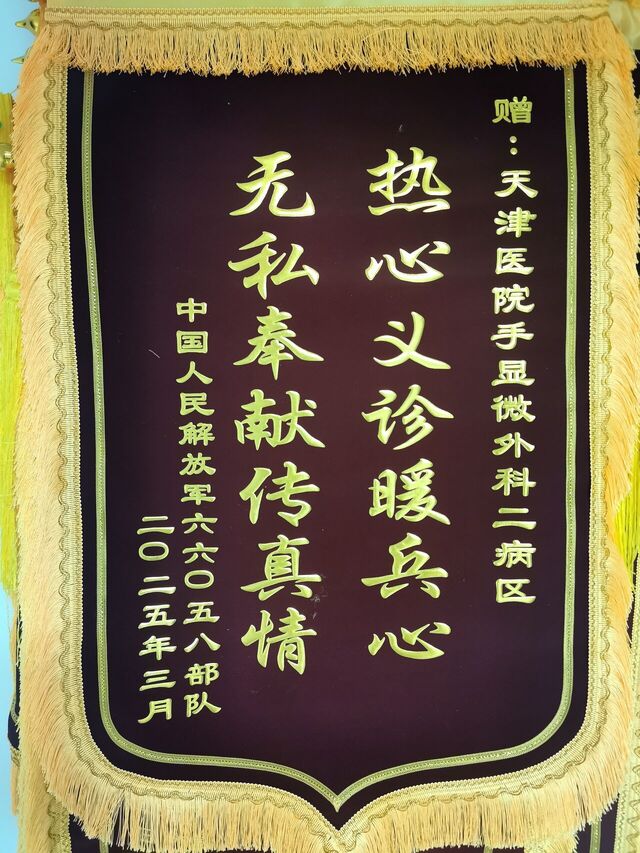 赠：天津医院手显微外科二病区
热心义诊暖兵心
无私奉献传真情
中国人民解放军六六〇五八部队
二〇二五年三月